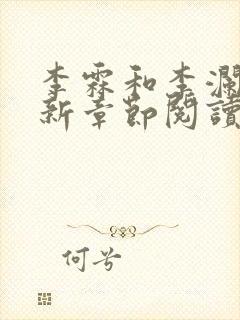 李霖和李瀾
新章節閱讀
何兮